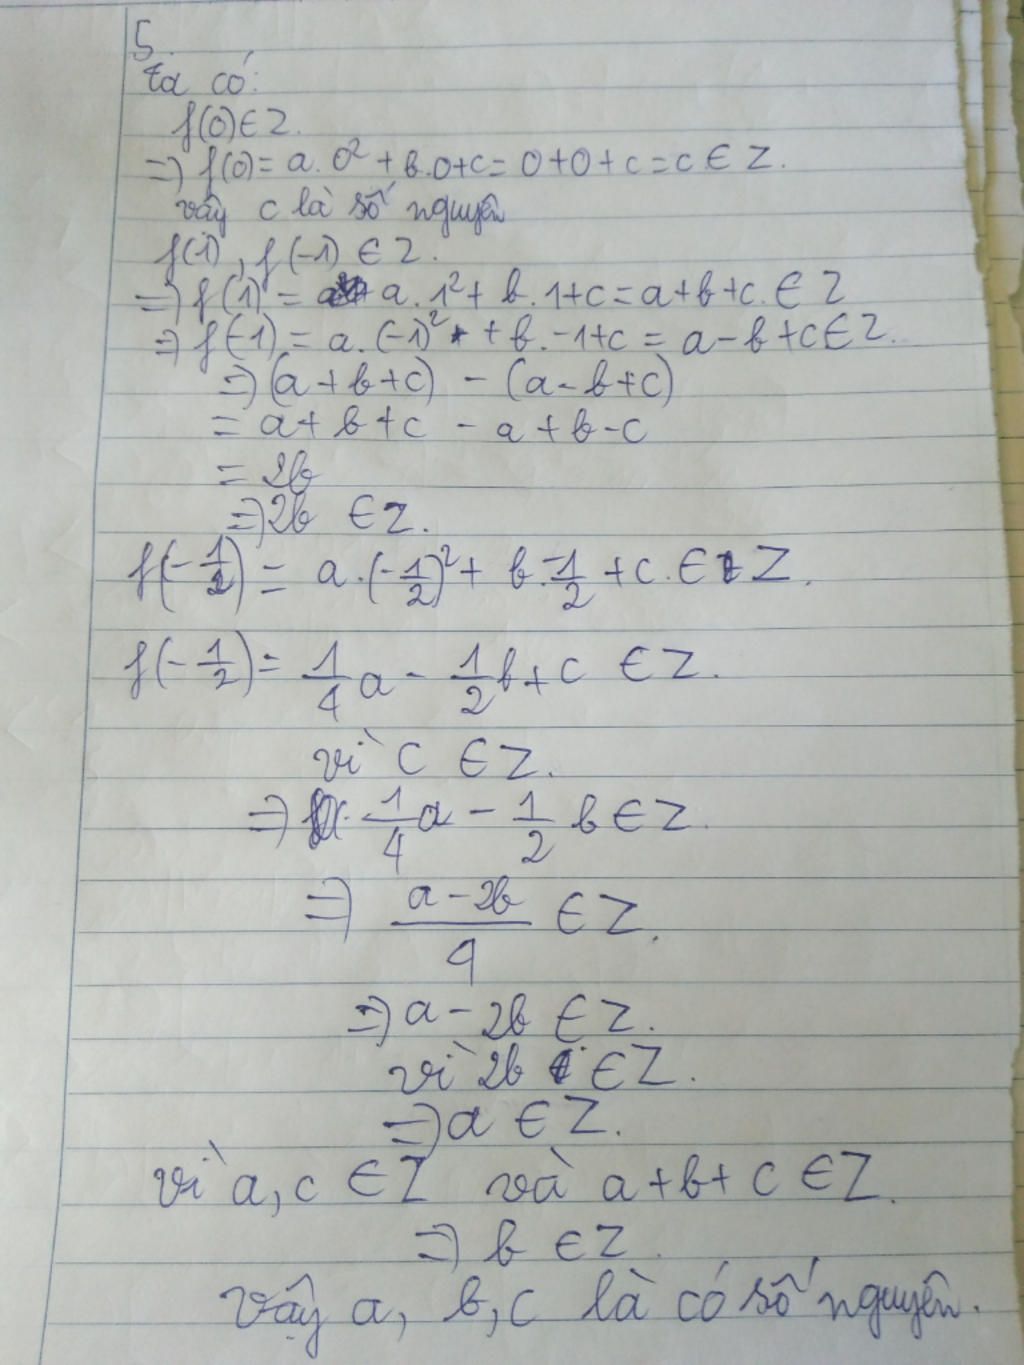 5.
ta có:
f(0) ∈ Z.
=> f(0) = a.0² + b.0+c = 0+0+c = c ∈ Z.
vậy c là số nguyên
f(1), f(-1) ∈ Z.
=> f(1) = a.1² + b.1+c = a+b+c. ∈ Z
=> f(-1) = a.(-1)² + b.-1+c = a-b+c ∈ Z.
=> (a+b+c) - (a-b+c)
= a+b+c - a+b-c
= 2b
=> 2b ∈ Z.
f(-1/2) = a.(-1/2)² + b.-1/2 + c. ∈ Z.
f(-1/2) = 1/4 a - 1/2 b + c ∈ Z.
vì c ∈ Z.
=> 1/4 a - 1/2 b ∈ Z.
=> (a-2b)/4 ∈ Z.
=> a-2b ∈ Z.
vì 2b ∈ Z.
=> a ∈ Z.
vì a, c ∈ Z và a+b+c ∈ Z.
=> b ∈ Z.
vậy a, b, c là có số nguyên.